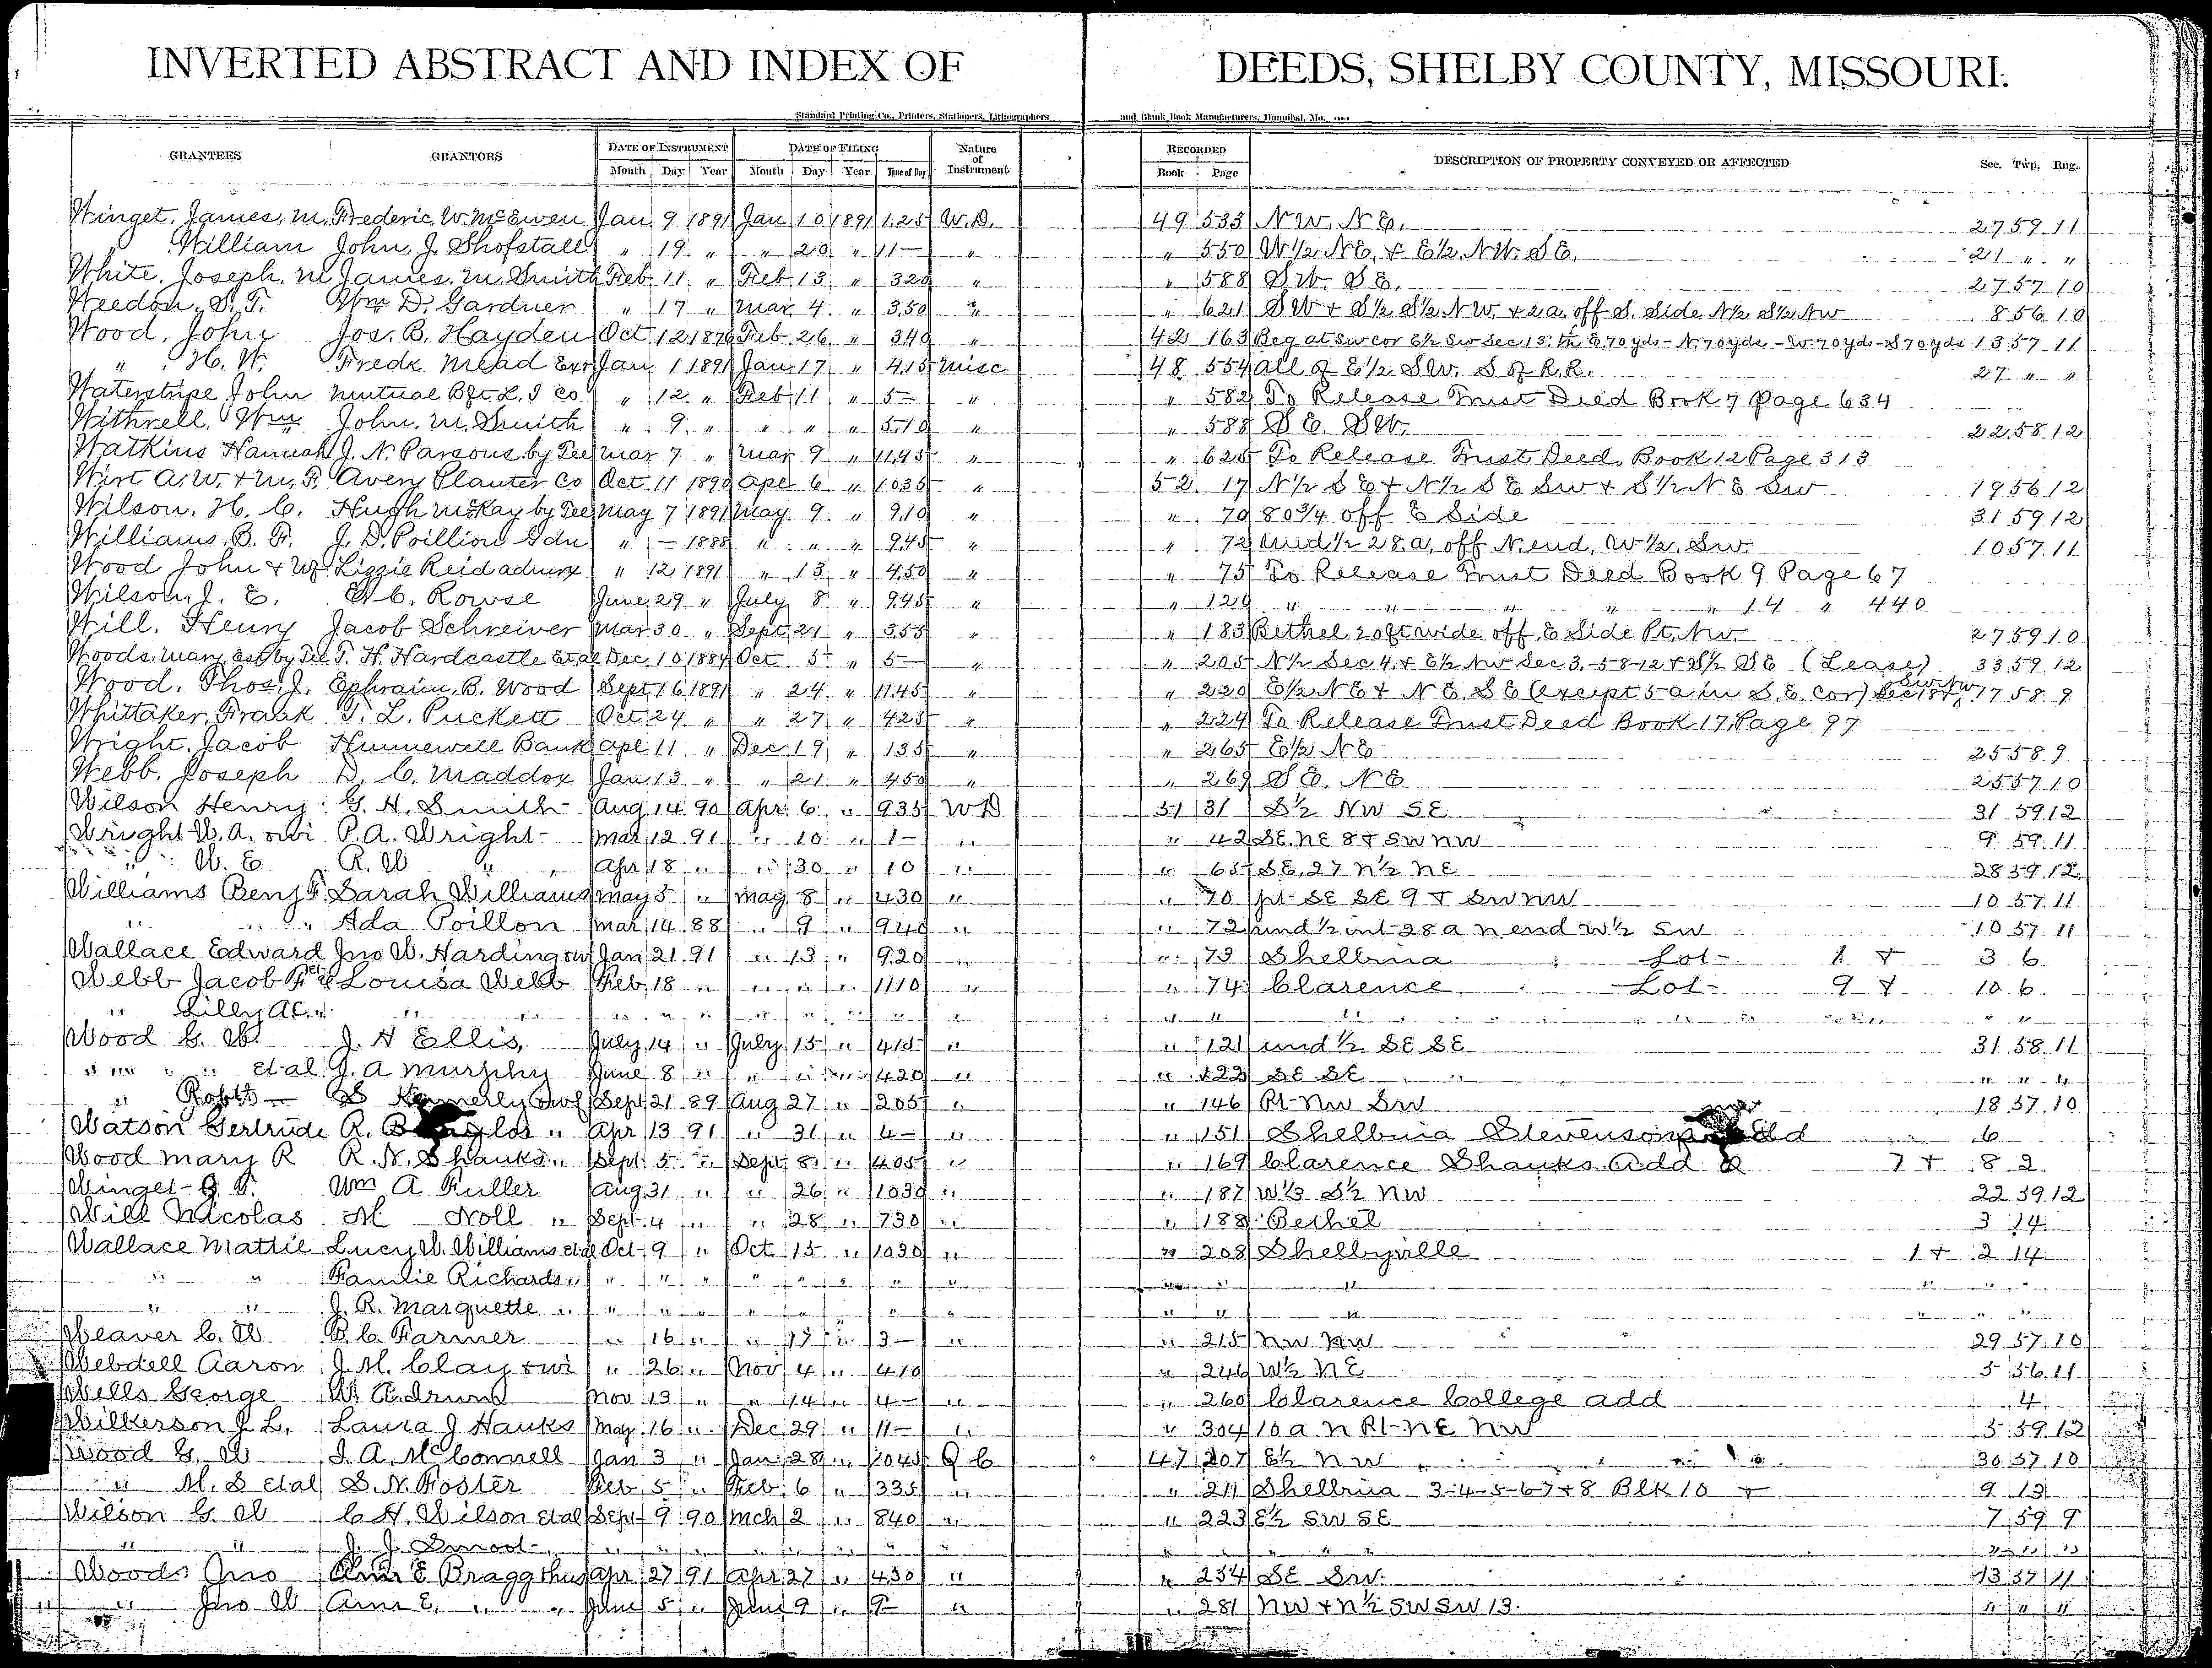 INVERTED ABSTRACT AND INDEX OF DEEDS, SHELBY COUNTY, MISSOURI.
Standard Printing Co., Printers, Stationers, Lithographers and Blank Book Manufacturers, Hannibal, Mo.
GRANTEES GRANTORS DATE OF INSTRUMENT DATE OF FILING Nature of Instrument RECORDED DESCRIPTION OF PROPERTY CONVEYED OR AFFECTED Sec. Twp. Rng.
Month Day Year Month Day Year Time of Day Book Page
Winget, James, M. Frederic W. McEwen Jan 9 1891 Jan 10 1891 1.25 W.D. 49 533 NW. NE. 27 59 11
" William John J. Shofstall " 19 " " 20 " 11— " " 550 W½ NE. & E½ NW. SE. 21 " "
White, Joseph, M James. M. Smith Feb 11 " Feb 13 " 320 " " 588 SW. SE. 27 57 10
Weedon, S. T. Wm D. Gardner " 17 " Mar 4 " 350 " " 621 SW & S½ S½ NW. & 2a. off S. Side N½ S½ NW 8 56 10
Wood, John Jos. B. Hayden Oct 12 1876 Feb 26 " 340 " 42 163 Beg at SW cor E½ SW Sec 13: th E 70 yds - N. 70 yds - W. 70 yds - S 70 yds 13 57 11
" H. W. Fredk Mead Exr Jan 1 1891 Jan 17 " 415 Misc 48 554 All of E½ SW. S of R.R. 27 " "
Waterstripe John Mutual Bft L. I Co " 12 " Feb 11 " 5— " " 582 To Release Trust Deed Book 7 Page 634
Withrell, Wm John. M. Smith " 9 " " " " 5.10 " " 588 SE. SW. 22 58 12
Watkins Hannah J. N. Parsons by Tee Mar 7 " Mar 9 " 11.45 " " 625 To Release Trust Deed, Book 12 Page 313
Wirt A. W. & M. F. Avery Planter Co Oct 11 1890 Apl 6 " 1035 " 52 17 N½ SE & N½ SE SW & S½ NE SW 19 56 12
Wilson. H. C. Hugh McKay by Tee May 7 1891 May 9 " 9.10 " " 70 80¾ off E Side 31 59 12
Williams, B. F. J. D. Poillion Gdn " — 1888 " " " 9.45 " " 72 Und ½ 28. a, off N. end, W½, SW. 10 57 11
Wood John & Wf Lizzie Reid admrx " 12 1891 " 13 " 4.50 " " 75 To Release Trust Deed Book 9 Page 67
Wilson, J. E. C. Rowse June 29 " July 8 " 9.45 " " 129 " " " " " 14 " 440
Will. Henry Jacob Schreiver Mar 30 " Sept 21 " 355 " " 183 Bethel 20 ft wide off E Side Pt. NW 27 59 10
Woods. Mary, est by Tee T. H. Hardcastle Et al Dec 10 1884 Oct 5 " 5— " " 205 N½ Sec 4, & E½ NW Sec 3, -58-12 & S½ SE (Lease) 33 59 12
Wood, Thos. J. Ephraim. B. Wood Sept 16 1891 " 24 " 11.45 " " 220 E½ NE & NE. SE (except 5 a in S. E. cor) Sec 18 & SW NW 17 58 9
Whittaker, Frank T. L. Puckett Oct 24 " " 27 " 425 " " 224 To Release Trust Deed Book 17, Page 97
Wright, Jacob Hunnewell Bank Apl 11 " Dec 19 " 135 " " 265 E½ NE 25 58 9
Webb, Joseph D. C. Maddox Jan 13 " " 21 " 450 " " 269 SE. NE 25 57 10
Wilson Henry G. H. Smith Aug 14 90 Apr 6 " 935 WD 51 31 S½ NW SE 31 59 12
Wright W. A. & wi P. A. Wright Mar 12 91 " 10 " 1— " " 42 SE. NE 8 & SW NW 9 59 11
" W. E R. W " Apr 18 " " 30 " 10 " " 65 SE, 27 N½ NE 28 59 12
Williams Benj F. Sarah Williams May 5 " May 8 " 430 " " 70 pt SE SE 9 & SW NW 10 57 11
" " Ada Poillon Mar 14 88 " 9 " 940 " " 72 und ½ int 28 a N end W½ SW 10 57 11
Wallace Edward Jno W. Harding & wi Jan 21 91 " 13 " 920 " " 73 Shelbina Lot 1 & 3 6
Webb Jacob F et al Louisa Webb Feb 18 " " " " 1110 " " 74 Clarence Lot 9 & 10 6
" Lilly A " " " " " " " " " " " " " " " "
Wood G. W. J. H Ellis July 14 " July 15 " 415 " " 121 und ½ SE SE 31 58 11
" " et al J. A Murphy June 8 " " " " 420 " " 122 SE SE " " "
" Robt S Kennerly & wf Sept 21 89 Aug 27 " 205 " " 146 Pt NW SW 18 57 10
Watson Gertrude R. " Apr 13 91 " 31 " 4— " " 151 Shelbina Stevensons Add 6
Wood Mary R R. N. Shanks " Sept 5 " Sept 8 " 405 " " 169 Clarence Shanks Add 7 & 8 2
Winget G. T. Wm A Fuller Aug 31 " " 26 " 1030 " " 187 W⅓ S½ NW 22 59 12
Will Nicolas M Noll " Sept 4 " " 28 " 730 " " 188 Bethel 3 14
Wallace Mattie Lucy W. Williams et al Oct 9 " Oct 15 " 1030 " " 208 Shelbyville 1 & 2 14
" " Famlie Richards " " " " " " " " " " " " " " "
" " J. R. Marquette " " " " " " " " " " " " " " "
Weaver C. W B. C. Farmer " 16 " " 17 " 3— " " 215 NW NW 29 57 10
Webdell Aaron J. M. Clay & wi " 26 " Nov 4 " 410 " 246 W½ NE 5 56 11
Wells George W. Nov 13 " " 14 " 4— " " 260 Clarence College add 4
Wilkerson J. L. Laura J Hanks May 16 " Dec 29 " 11— " " 304 10 a N Pt NE NW 5 59 12
Wood G. W J. A. McConnell Jan 3 " Jan 28 " 1045 Q C 47 207 E½ NW 30 57 10
" M. S et al S. N. Foster Feb 5 " Feb 6 " 335 " " 211 Shelbina 3-4-5-6-7 & 8 Blk 10 & 9 13
Wilson G. W C. H. Wilson et al Sept 9 90 Mch 2 " 840 " " 223 E½ SW SE 7 59 9
" " J. J. Smoot " " " " " " " " " " " " "
Woods Jno Ann E Bragg & hus Apr 27 91 Apr 27 " 430 " " 234 SE SW. 13 57 11
" Jno W Ann E. " " June 5 " June 9 " 9— " " 281 NW & N½ SW SW 13. " " "